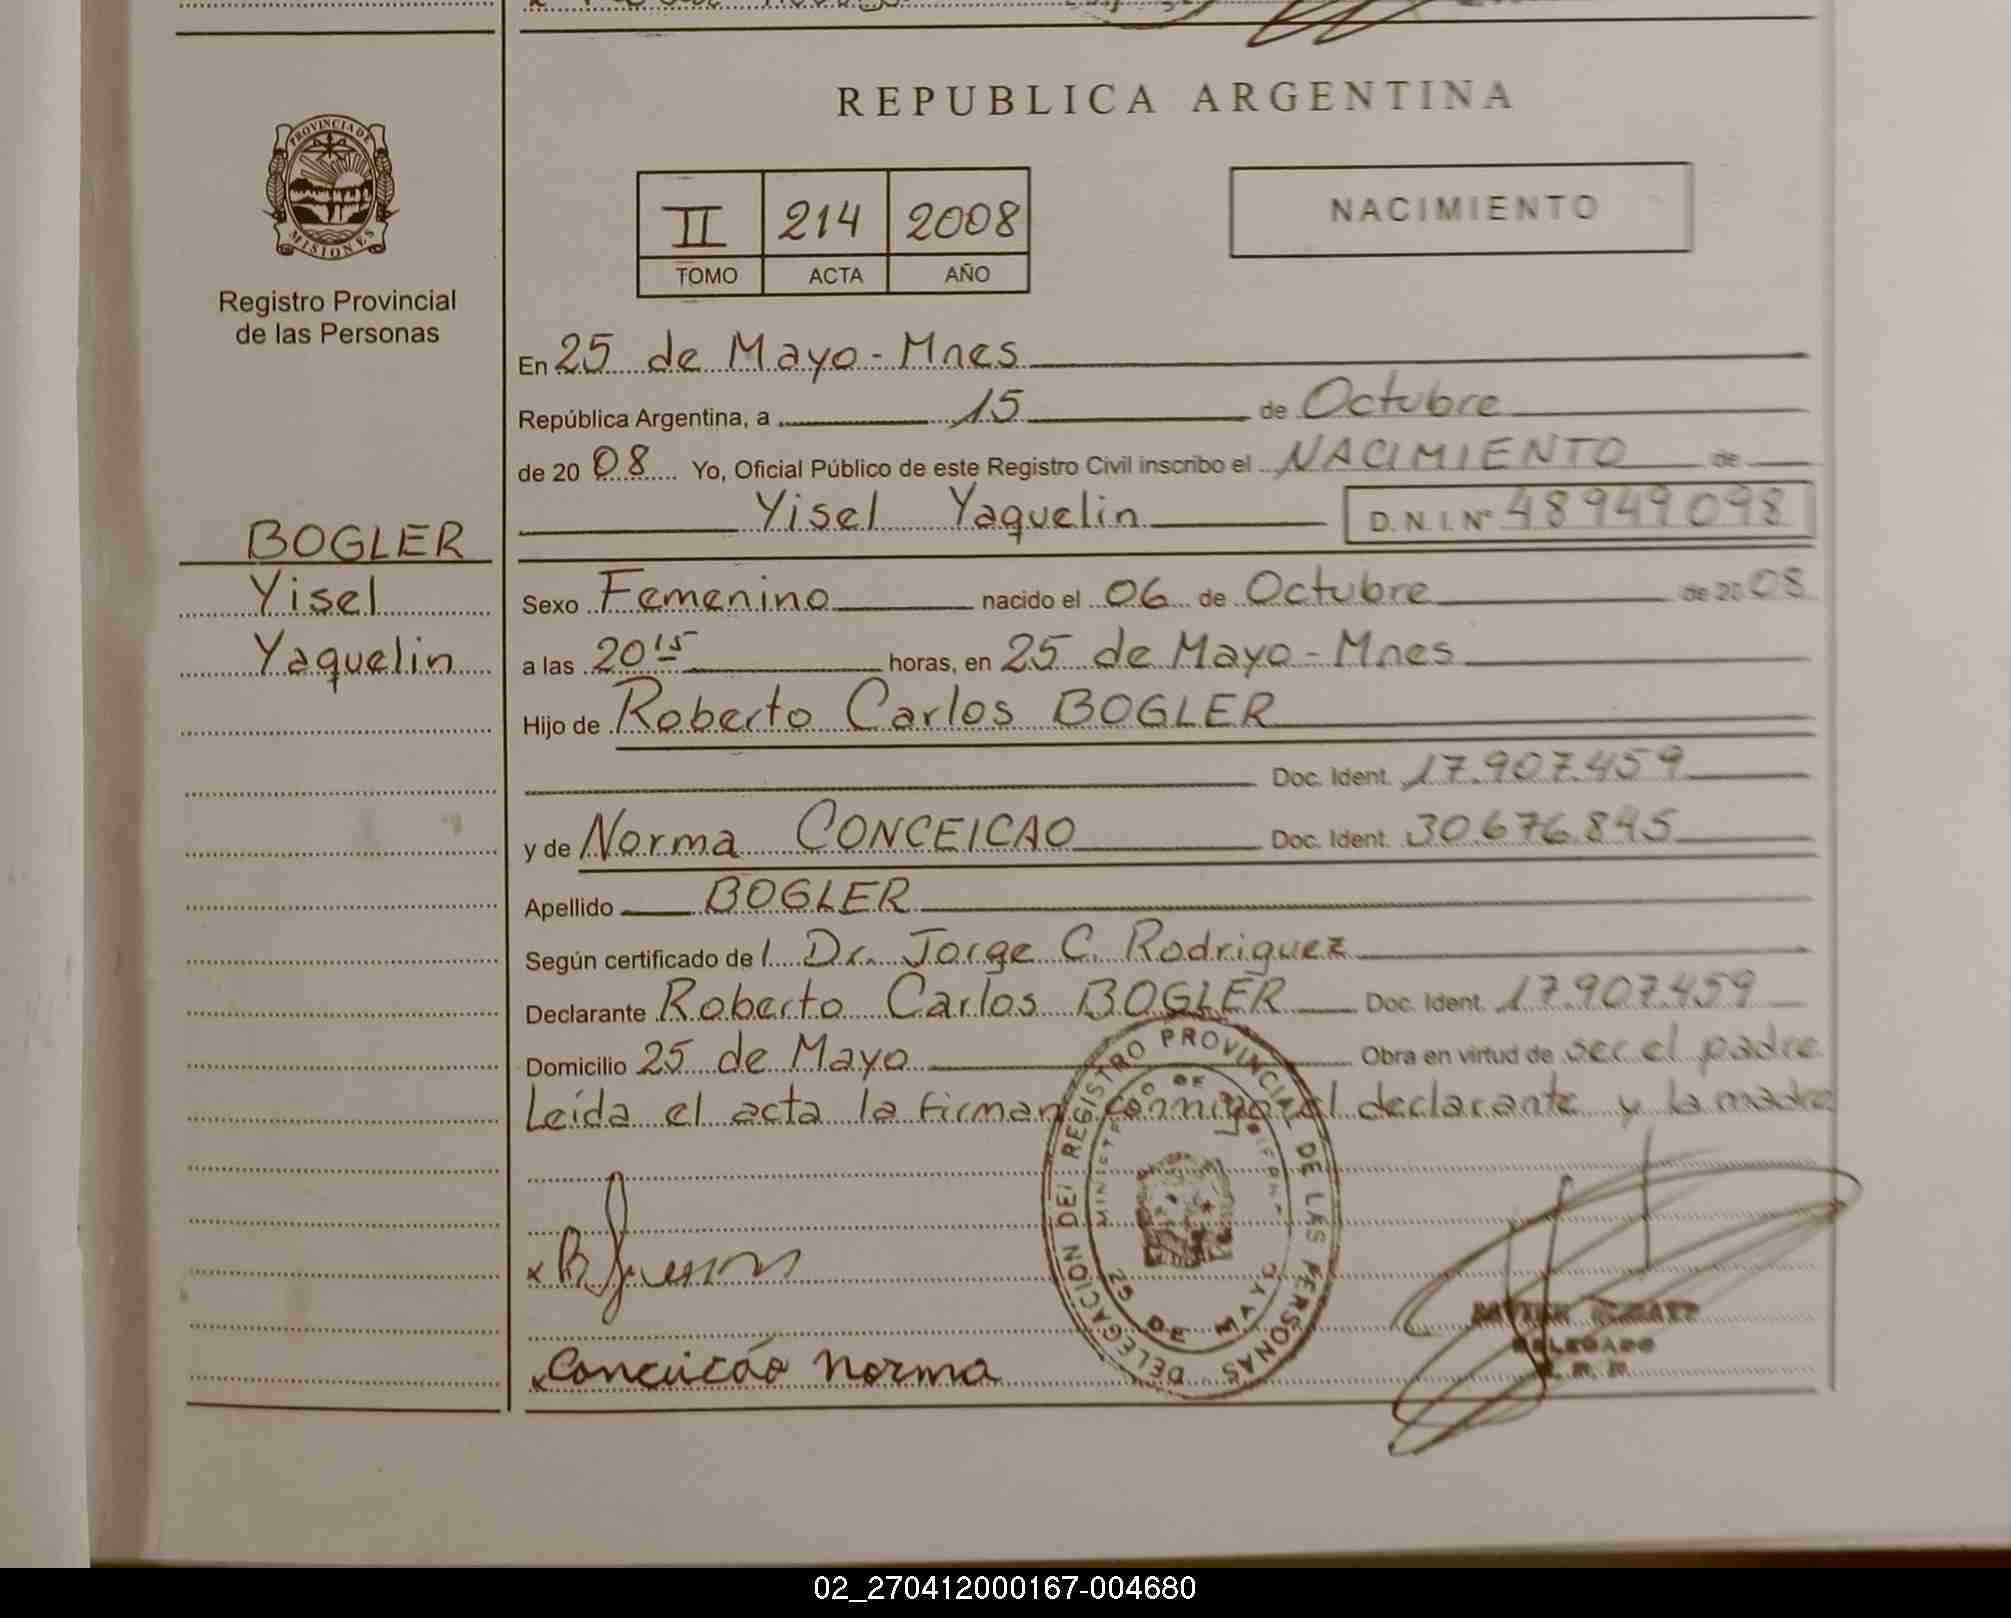 REPUBLICA ARGENTINA
PROVINCIA DE MISIONES
Registro Provincial
de las Personas
II 214 2008
TOMO ACTA AÑO
NACIMIENTO
En 25 de Mayo - Mnes
República Argentina, a 15 de Octubre
de 20 08 Yo, Oficial Público de este Registro Civil inscribo el NACIMIENTO de
Yisel Yaquelin D.N.I. Nº 48949098
BOGLER
Yisel
Yaquelin
Sexo Femenino nacido el 06 de Octubre de 20 08
a las 20 15 horas, en 25 de Mayo - Mnes
Hijo de Roberto Carlos BOGLER
Doc. Ident. 17.907.459
y de Norma CONCEICAO Doc. Ident. 30.676.845
Apellido BOGLER
Según certificado de l Dr. Jorge C. Rodriguez
Declarante Roberto Carlos BOGLER Doc. Ident. 17.907.459
Domicilio 25 de Mayo Obra en virtud de ser el padre
Leida el acta la firman conmigo el declarante y la madre
DELEGACION DEL REGISTRO PROVINCIAL DE LAS PERSONAS
25 DE MAYO
x Conceicáo Norma
DELEGADO
02_270412000167-004680